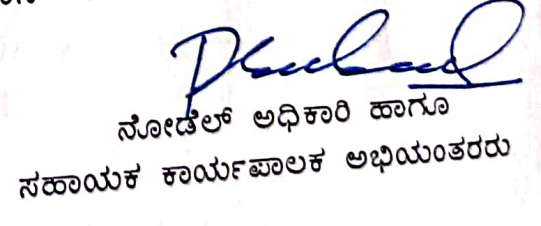 ನೋಡೆಲ್ ಅಧಿಕಾರಿ ಹಾಗೂ
ಸಹಾಯಕ ಕಾರ್ಯಪಾಲಕ ಅಭಿಯಂತರರು